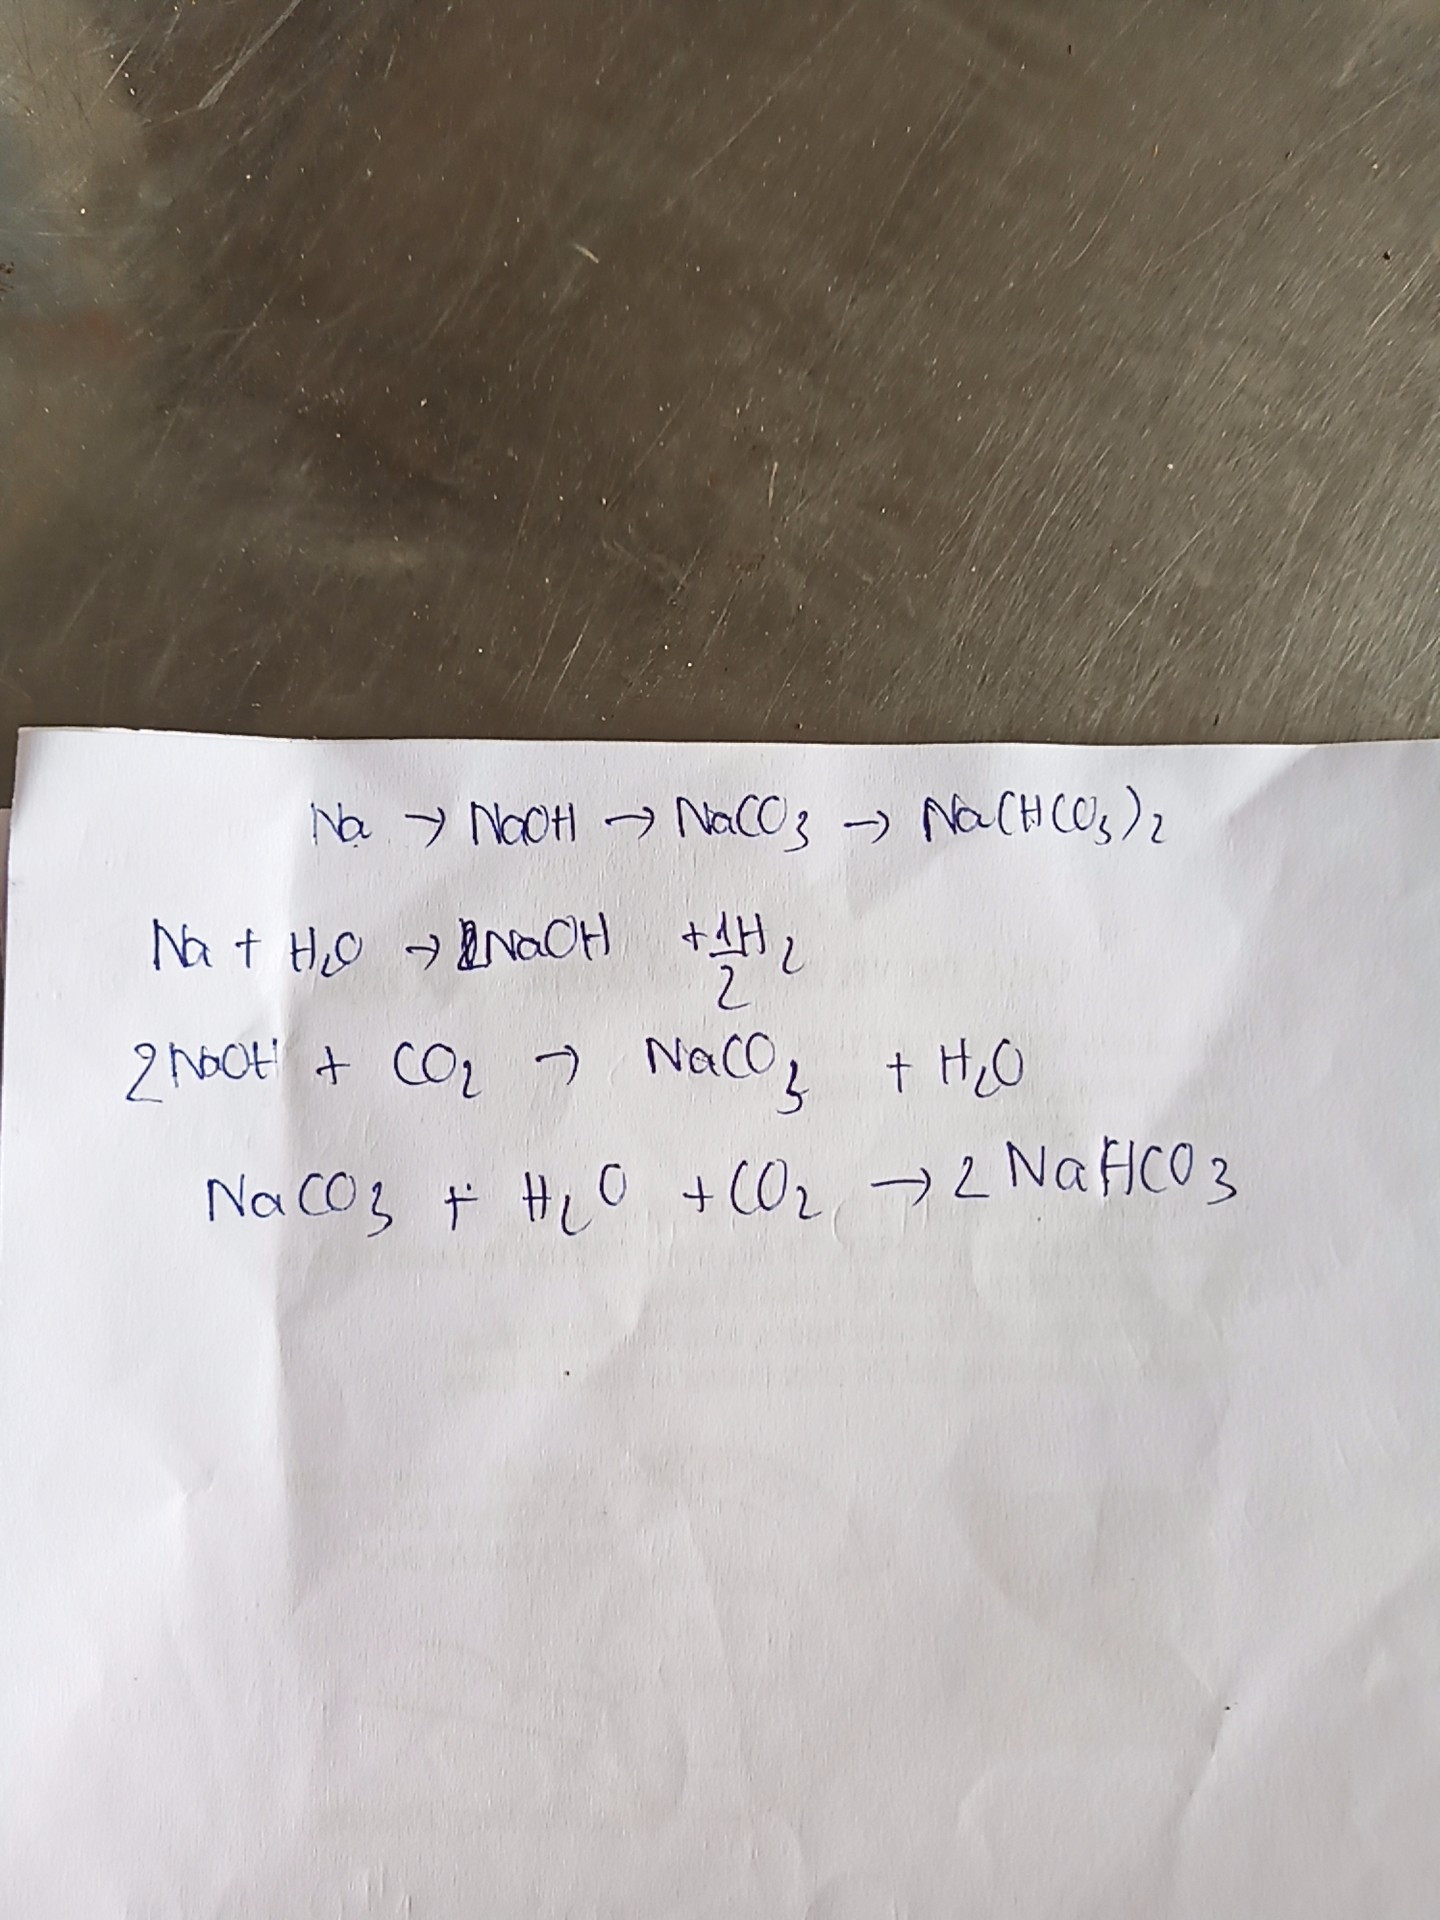 Na → NaOH → NaCO3 → Na(HCO3)2
Na + H2O → NaOH + 1/2 H2
2NaOH + CO2 → NaCO3 + H2O
NaCO3 + H2O + CO2 → 2 NaHCO3